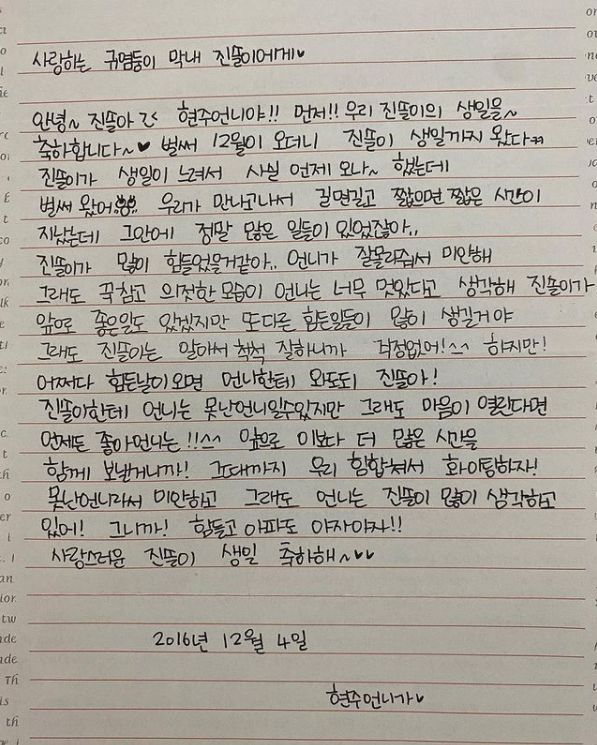 사랑하는 귀염둥이 막내 진똘이에게♥
안녕~ 진똘아 현주언니야!! 먼저!! 우리 진똘이의 생일을~
축하합니다~♥ 벌써 12월이 오더니 진똘이 생일까지 왔다ㅠㅠ
진똘이가 생일이 느려서 사실 언제 오나~ 했는데
벌써 왔어 우리가 만나고나서 길면길고 짧으면 짧은 시간이
지났는데 그안에 정말 많은 일들이 있었잖아..
진똘이가 많이 힘들었을거같아.. 언니가 잘몰라줘서 미안해
그래도 꾹참고 의젓한 모습이 언니는 너무 멋있다고 생각해 진똘이가
앞으로 좋은일도 있겠지만 또다른 힘든일들이 많이 생길거야
그래도 진똘이는 알아서 척척 잘하니까 걱정없어!^^ 하지만!
어쩌다 힘든날이오면 언니한테 와도되 진똘아!
진똘이한테 언니는 못난언니일수있지만 그래도 마음이 열린다면
언제든 좋아언니는!!^^ 앞으로 이보다 더 많은 시간을
함께 보낼거니까! 그때까지 우리 힘합쳐서 화이팅하자!
못난언니라서 미안하고 그래도 언니는 진똘이 많이 생각하고
있어! 그니까! 힘들고 아파도 아자아자!!
사랑스러운 진똘이 생일 축하해~♥♥
2016년 12월 4일
현주언니가♥